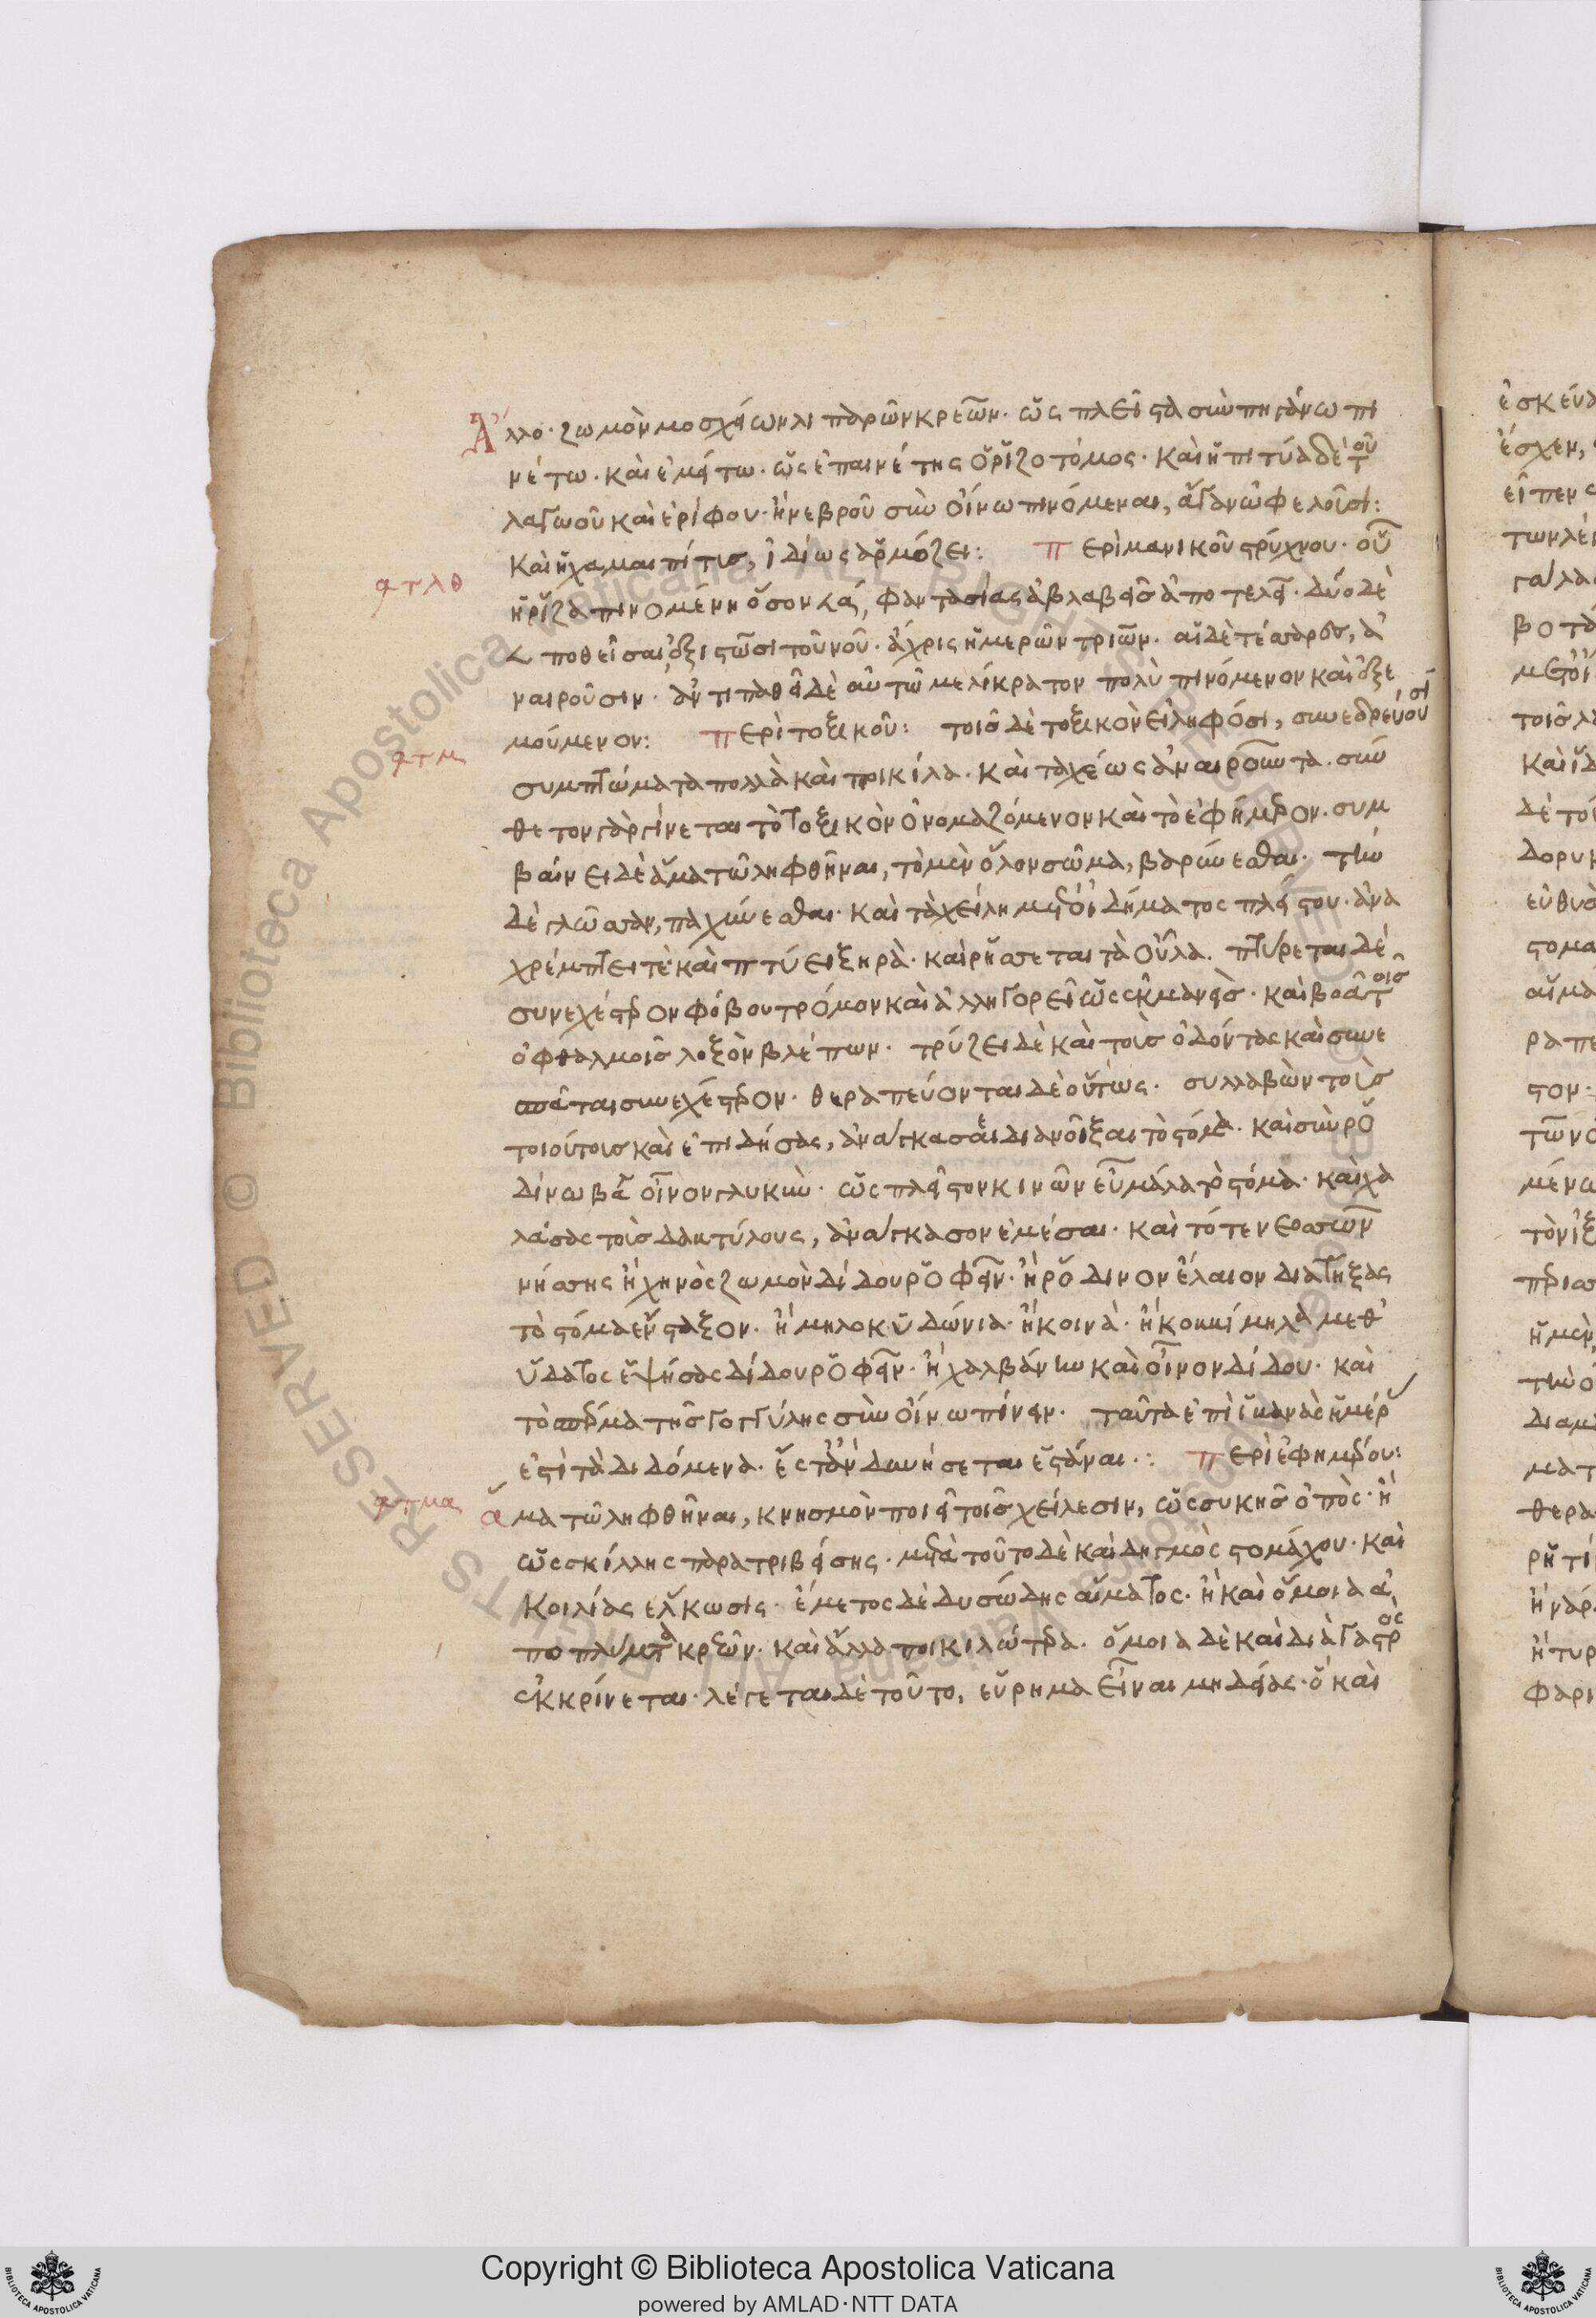 Ἄλλο· ζωμὸν μοσχείων λιπαρῶν κρεῶν· ὡς πλεῖστα σὺν πηγάνω πι
νέτω· καὶ ἐμείτω· ὡς ἐπαινέτης ὁ ῥιζοτόμος· καὶ ἡ πιτύα δὲ τοῦ
λαγωοῦ καὶ ἐρίφου· ἢ νεβροῦ σὺν οἴνω πινόμεναι, ἄγαν ὠφελοῦσι:
καὶ ἡ χαμαιπίτυσ, ἰδίως ἁρμόζει: Περὶ μανικοῦ στρύχνου· οὗ
φτλθ
ἡ ῥίζα πινομένη ὅσον < αʹ, φαντασίας ἀβλαβεῖσ ἀποτελεῖ· δύο δὲ
< ποθεῖσαι, ἐξιστῶσι τοῦ νοῦ· ἄχρις ἡμερῶν τριῶν· αἱ δὲ τέσσαρεσ, ἀ
ναιροῦσιν· ἀντιπαθεῖ δὲ αὐτῶ μελίκρατον πολὺ πινόμενον καὶ ἐξε
μούμενον: Περὶ τοξικοῦ: τοῖσ δὲ τοξικὸν εἰληφόσι, συνεδρεύουσι
φτμ
συμπτώματα πολλὰ καὶ ποικίλα· καὶ ταχέως ἀναιροῦντα· σύν
θετον γὰρ γίνεται τὸ τοξικὸν ὀνομαζόμενον καὶ τὸ ἐφήμερον· συμ
βαίνει δὲ ἅμα τῶ ληφθῆναι, τὸ μὲν ὅλον σῶμα, βαρύνεσθαι· τὴν
δὲ γλῶσσαν, παχύνεσθαι· καὶ τὰ χείλη μετ' οἰδήματος πλείστου· ἀνα
χρέμπτει τὲ καὶ πτύει ξηρά· καὶ ῥήσσεται τὰ οὖλα· πτύρεται δὲ
συνεχέστερον φόβου τρόμον καὶ ἀλληγορεῖ ὡς ἐκμανεῖσ· καὶ βοᾶ τοῖσ
ὀφθαλμοῖσ λοξὸν βλέπων· τρύζει δὲ καὶ τοὺσ ὀδόντας καὶ συνε
σπᾶται συνεχέστερον· θεραπεύονται δὲ οὕτως· συλλαβὼν τοὺσ
τοιούτουσ καὶ ἐπιδήσας, ἀναγκάσεις διανοῖξαι τὸ στόμα· καὶ σὺν ῥο
δίνω βαλ οἶνον γλυκὺν· ὡς πλεῖστον κινῶν εὖ μάλα τὸ στόμα· καὶ χα
λάσας τοὺσ δακτύλους, ἀνάγκασον ἐμέσαι· καὶ τότε νεοσσῶν
νήσσης ἢ χηνὸς ζωμὸν δίδου ῥοφεῖν· ἢ ῥόδινον ἔλαιον διατήξας
τὸ στόμα ἔνσταξον· ἢ μηλοκυδώνια· ἢ κοινά· ἢ κοκκίμηλα μεθ'
ὕδατος ἑψήσας δίδου ῥοφεῖν· ἢ χαλβάνην καὶ οἶνον δίδου· καὶ
τὸ σπέρμα τῆσ γογγύλης σὺν οἴνω πίνειν· ταῦτα ἐπὶ ἱκανὰς ἡμέρ
ἐστὶ τὰ διδόμενα· ἔς τ' ἂν δυνήσεται ἑστάναι·: Περὶ ἐφημέρου:
φτμα
ἅμα τῶ ληφθῆναι, κνησμὸν ποιεῖ τοῖσ χείλεσιν, ὡς συκῆσ ὀπὸς· ἢ
ὡς σκίλλης παρατριβείσης· μετὰ τοῦτο δὲ καὶ δηγμὸς στομάχου· καὶ
κοιλίας ἕλκωσις· ἔμετος δὲ δυσώδης αἵματος· ἢ καὶ ὅμοια ἀ
ποπλύματα κρεῶν· καὶ ἄλλα ποικιλώτερα· ὅμοια δὲ καὶ διὰ γαστρὸς
ἐκκρίνεται· λέγεται δὲ τοῦτο, εὕρημα εἶναι μηδείας· ὃ καὶ
Copyright © Biblioteca Apostolica Vaticana
powered by AMLAD·NTT DATA